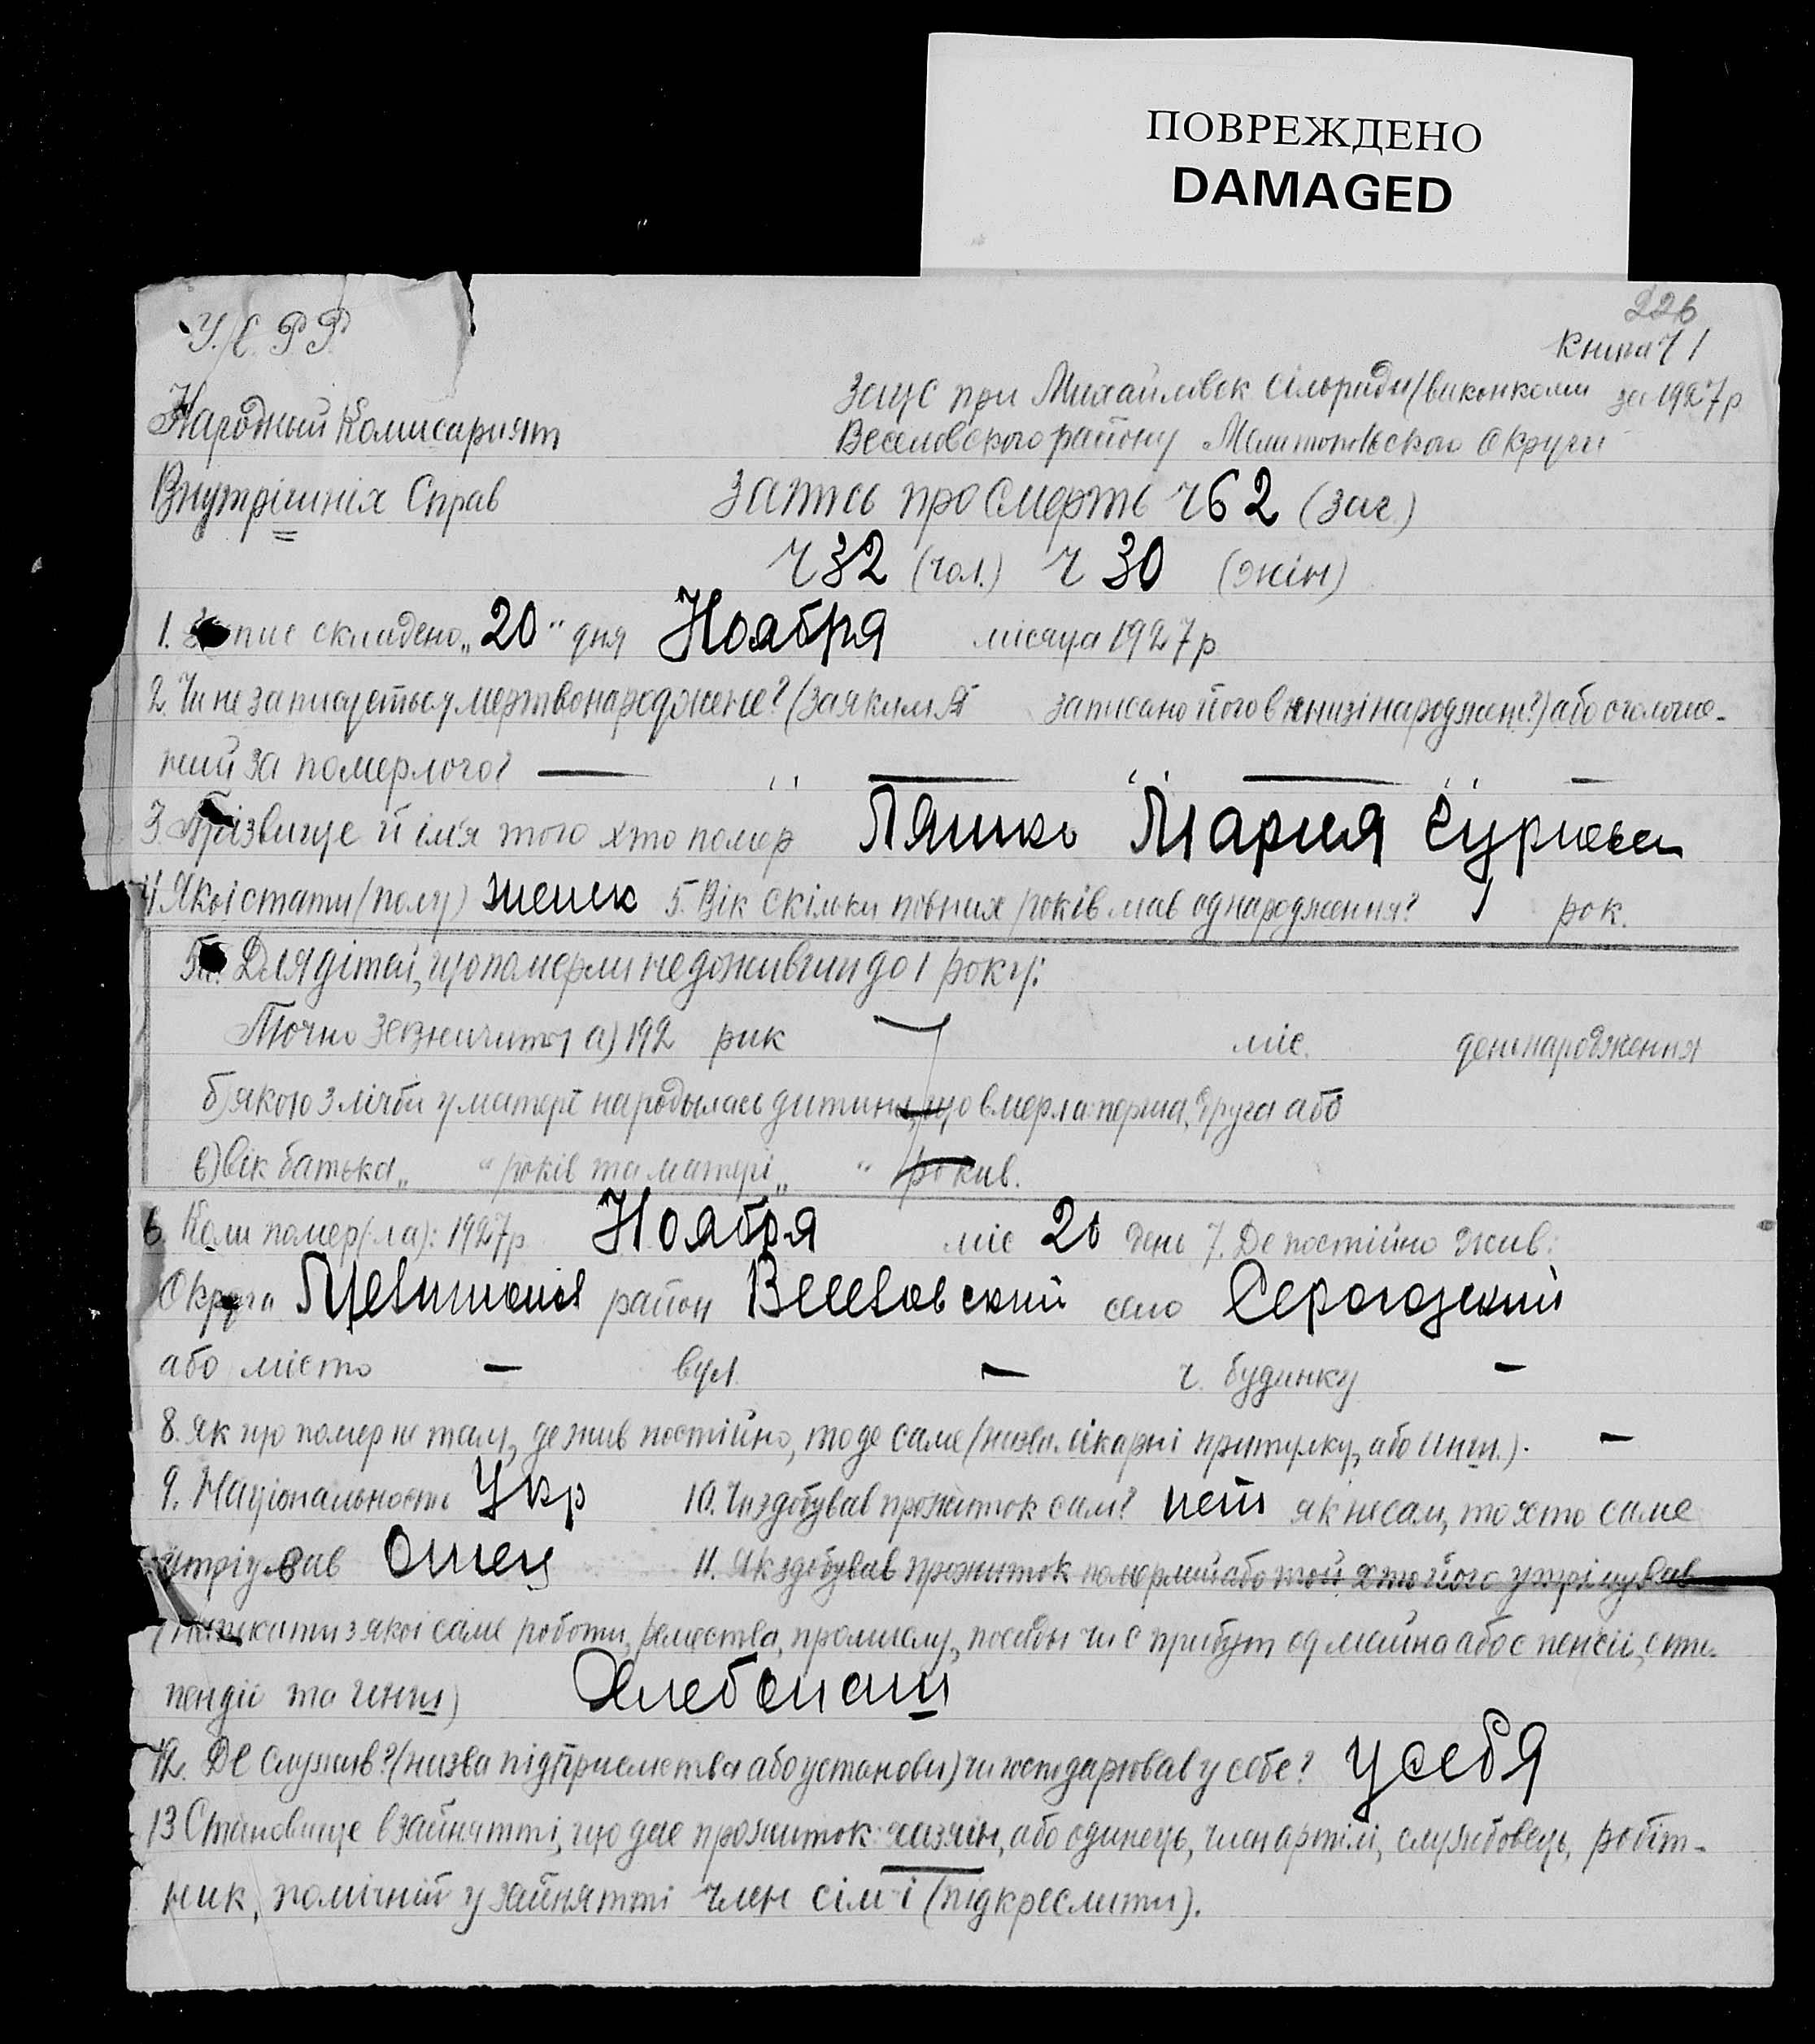 ПОВРЕЖДЕНО
DAMAGED
226
У.С.Р.Р.
Книга Ч 1
Загс при Михайлівск сільради/виконкоми за 1927р
Народный Комисарият
Веселовского району Мелитопольского Округи
Внутрішніх Справ
Запись про Смерть ч 62 (заг.)
ч 32 (чол.) ч 30 (жін)
1. Запис складено „20" дня Ноября місяця 1927р
2. Чи не записується мертвонароджене? (за яким № записано його в книзі народжен?) або оголоше-
ний за померлого? —
3. Прізвище й ім'я того хто помер Ляшко Мария
4. Якоі стати (полу) женск 5. Вік скільки повних років мав од народження? 1 рок.
5а. Для дітей, що померли не доживши до 1 року:
Точно зазначити а) 192 рик міс. день народження
б) якою з лічби у матері народылась дитина, що вмерла: перша, друга або
в) вік батька „ " років та матері „ " рокив.
6. Коли помер(-ла): 1927р Ноября міс 20 день 7. Де постійно жив:
Округа район Веселовский село Серогозский
або місто — вул. — ч. будинку —
8. Як що помер не там, де жив постійно, то де саме (назва лікарні притулку, або инш.). —
9. Національность Укр 10. Чи здобував прожиток сам? нет як не сам, то хто саме
утрімував Отец 11. Як здобував прожиток померлий або той хто його утрімував
з якоі саме роботи, ремества, промислу, посады чи є прибут од майна або є пенсіі, сти-
пендіі та инш) Хлебопаш
12. Де служив? (назва підприємства або установи) чи господарював у себе? у себя
13 Становище в зайнятті, що дає прожиток: хазяін, або одинець, член артілі, службовець, робіт-
ник, помічній у зайнятті член сім'і (підкреслити).